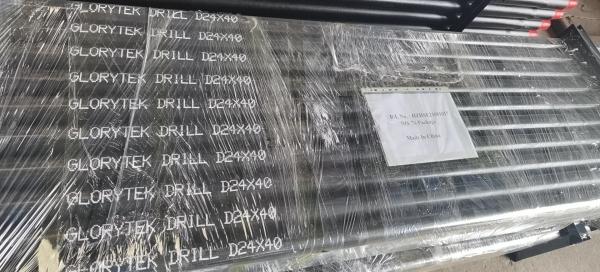 GLORYTEK DRILL D24X40
GLORYTEK DRILL D24X40
GLORYTEK DRILL D24X40
GLORYTEK DRILL D24X40
GLORYTEK DRILL D24X40
GLORYTEK DRILL D24X40
GLORYTEK DRILL D24X40
GLORYTEK DRILL D24X40
GLORYTEK DRILL D24X40
GLORYTEK DRILL D24X40
B/L No.:
Made In China